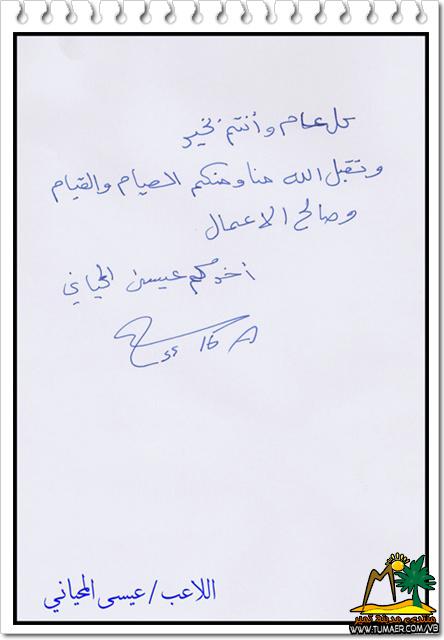 كل عام وأنتم بخير
وتقبل الله منا ومنكم الصيام والقيام
وصالح الاعمال
أخوكم عيسى المحياني
16
اللاعب / عيسى المحياني
منتدى مدينة تمير
WWW.TUMAER.COM/VB